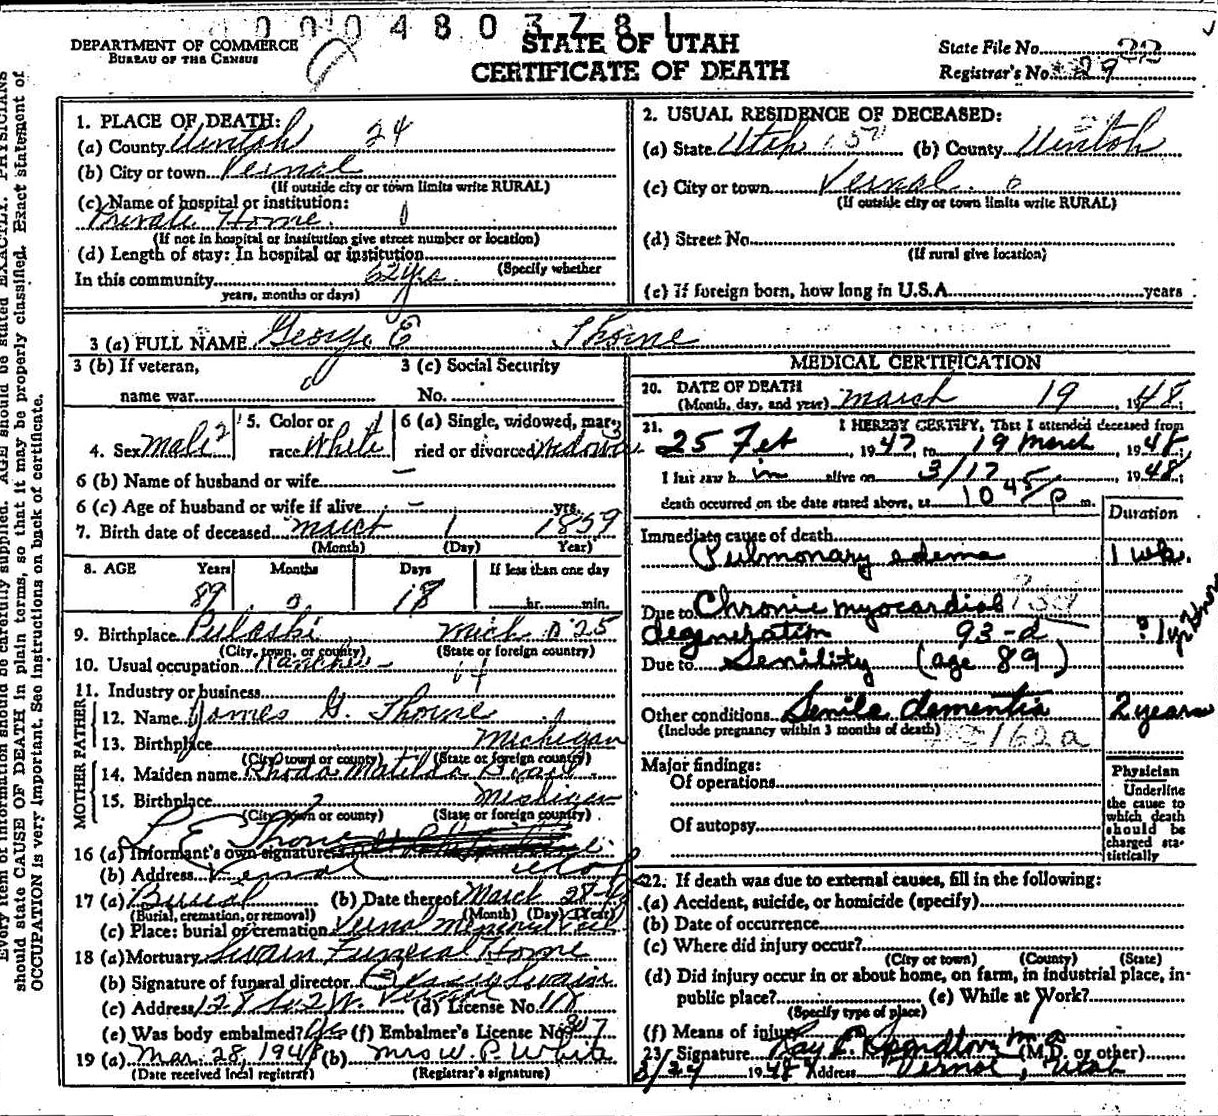 0004803781
DEPARTMENT OF COMMERCE
BUREAU OF THE CENSUS
STATE OF UTAH
CERTIFICATE OF DEATH
State File No. 22
Registrar's No. 29
Every item of information should be carefully supplied. AGE should be stated EXACTLY. PHYSICIANS
should state CAUSE OF DEATH in plain terms, so that it may be properly classified. Exact statement of
OCCUPATION is very important. See instructions on back of certificate.
1. PLACE OF DEATH:
(a) County Uintah 24
(b) City or town Vernal
(If outside city or town limits write RURAL)
(c) Name of hospital or institution:
Private Home
(If not in hospital or institution give street number or location)
(d) Length of stay: In hospital or institution
(Specify whether
In this community 62 yrs.
years, months or days)
2. USUAL RESIDENCE OF DECEASED:
(a) State Utah (b) County Uintah
(c) City or town Vernal
(If outside city or town limits write RURAL)
(d) Street No.
(If rural give location)
(e) If foreign born, how long in U.S.A. years
3 (a) FULL NAME George E Thorne
3 (b) If veteran,
name war
3 (c) Social Security
No.
4. Sex Male
5. Color or
race White
6 (a) Single, widowed, mar-
ried or divorced Widower
6 (b) Name of husband or wife –
6 (c) Age of husband or wife if alive – yrs.
7. Birth date of deceased March 1 1859
(Month) (Day) Year)
8. AGE Years Months Days If less than one day
89 0 18 hr. min.
9. Birthplace Pulaski Mich
(City, town, or county) (State or foreign country)
10. Usual occupation Rancher
11. Industry or business
FATHER
12. Name James G. Thorne
13. Birthplace Michigan
(City town or county) (State or foreign country)
MOTHER
14. Maiden name Rhoda Matilda
15. Birthplace ? Michigan
(City town or county) (State or foreign country)
L E Thorne
16 (a) Informant's own signature
(b) Address Vernal Utah
17 (a) Burial (b) Date thereof March
(Burial, cremation, or removal) (Month) (Day) (Year)
(c) Place: burial or cremation Vernal Memorial
18 (a) Mortuary Swain Funeral Home
(b) Signature of funeral director Swain
(c) Address 128 So. 2 W. Vernal (d) License No.
(e) Was body embalmed? Yes (f) Embalmer's License No.
19 (a) Mar. 28, 1948 (b) Mrs W. P. White
(Date received local registrar) (Registrar's signature)
MEDICAL CERTIFICATION
20. DATE OF DEATH
(Month, day, and year) March 19, 1948;
21. I HEREBY CERTIFY, That I attended deceased from
25 Feb, 1947, to 19 March, 1948;
I last saw him alive on 3/17, 1948;
death occurred on the date stated above, at 10 45/p m.
Duration
Immediate cause of death
Pulmonary edema 1 wk.
Due to Chronic myocardial
degeneration 93-d
Due to Senility (age 89)
Other conditions Senile dementia 2 years
(Include pregnancy within 3 months of death) 162a
Major findings:
Of operations
Of autopsy
Physician
Underline
the cause to
which death
should be
charged sta-
tistically
22. If death was due to external causes, fill in the following:
(a) Accident, suicide, or homicide (specify)
(b) Date of occurrence
(c) Where did injury occur?
(City or town) (County) (State)
(d) Did injury occur in or about home, on farm, in industrial place, in-
public place? (e) While at Work?
(Specify type of place)
(f) Means of injury
23. Signature Ray E. Spendlove M.D. (M.D. or other)
1948 Address Vernal, Utah